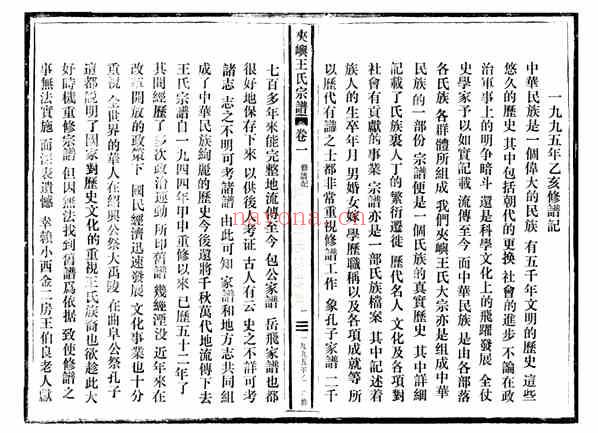 一九九五年乙亥修譜記
中華民族是一個偉大的民族 有五千年文明的歷史 這些
悠久的歷史 其中包括朝代的更換 社會的進步 不論在政
治軍事上的明争暗斗 還是科學文化上的飛躍發展 全仗
史學家予以如實記載 流傳至今 而中華民族 是由各部落
各氏族 各群體所組成 我們夾嶼王氏大宗亦是組成中華
民族的一部份 宗譜便是一個民族的真實歷史 其中詳細
記載了氏族裏人丁的繁衍遷徙 歷代名人 文化及各項對
社會有貢獻的事業 宗譜亦是一部氏族檔案 其中記述着
族人的生卒年月 男婚女嫁 學歷職稱以及各項成就等 所
以歷代有識之士都非常重視修譜工作 象孔子家譜 二千
夾嶼王氏宗譜 卷一 修譜記
一九九五年乙
七百多年來能完整地流傳至今 包公家譜 岳飛家譜也都
很好地保存下來 以供後人考证 古人有云 史之不詳可考
諸志 志之不明可考諸譜 由此可知 家譜和地方志共同組
成了中華民族絢麗的歷史今後還將千秋萬代地流傳下去
王氏宗譜自一九四四年甲申重修以來 已歷五十二年了
其間經歷了多次政治運動 所印舊譜 幾經湮没 近年來在
改革開放的政策下 國民經濟迅速發展 文化事業也十分
重視 全世界的華人在紹興公祭大禹陵 在曲阜公祭孔子
這都説明了國家對歷史文化的重視王氏族裔也欲趁此大
好時機重修宗譜 但因無法找到舊譜爲依据 致使修譜之
事無法實施 而深表遺憾 幸賴小西金二房王伯良老人獻
nayona.com